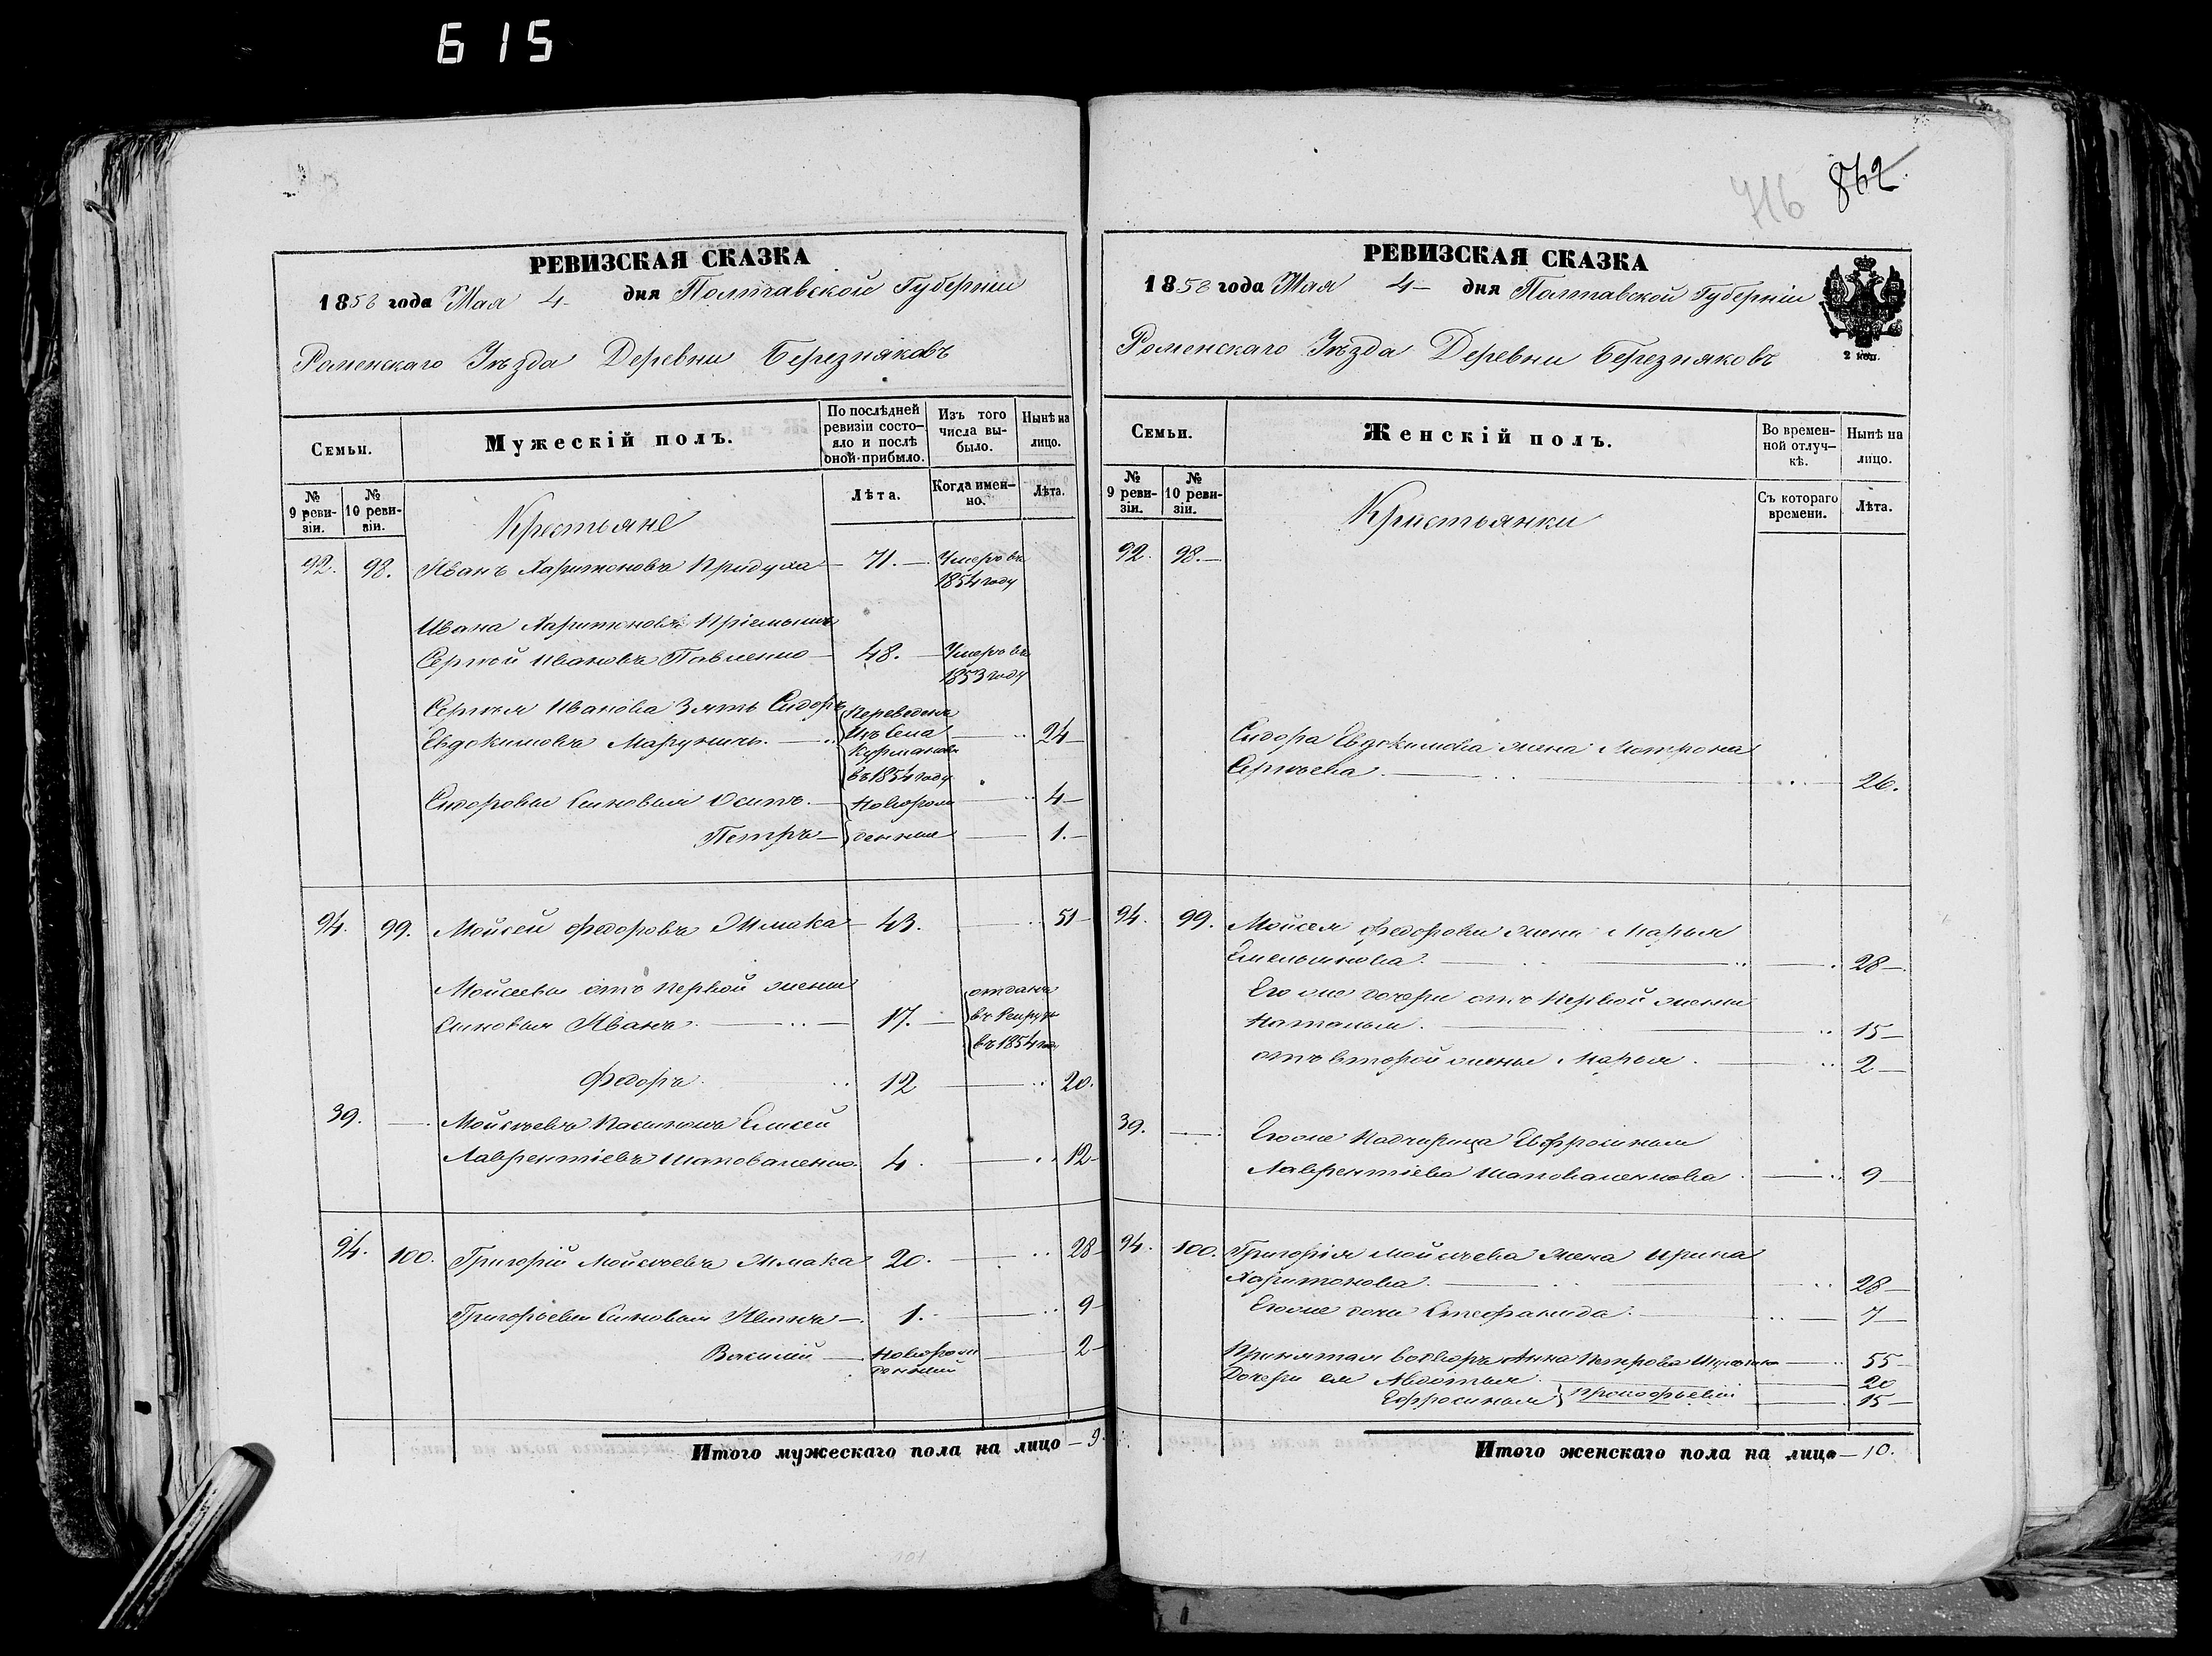 615
862
716
РЕВИЗСКАЯ СКАЗКА
1858 года Мая 4 дня Полтавской Губерніи
Роменскаго Уѣзда Деревни Березняковъ
Семьи.
Мужескій полъ.
По послѣдней ревизіи состо-
яло и послѣ
оной прибыло.
Изъ того
числа вы-
было.
Нынѣ на
лицо.
№
9 реви-
зіи.
№
10 реви-
зіи.
Крестьяне
Лѣта.
Когда имен-
но.
Лѣта.
92. 98. Иванъ Харитоновъ Придуха 71. Умеръ въ
1854 году
Ивана Харитонова Пріемышъ
Сергѣй Ивановъ Павленко 48. Умеръ въ
1853 году
Сергѣя Иванова Зять Сидоръ
Евдокимовъ Марунич Переведенъ
Изъ Села
въ 1854 году 24
Сидоровы Сыновья Осипъ 4
Петръ 1.
Новорожденные
94. 99. Мойсей Федоровъ Шмака 43. 51
Мойсеевы отъ первой жены
сыновья Иванъ 17. отданъ
въ Рекруты
въ 1854 году
Федоръ 12 20.
39. Мойсѣевъ Пасынокъ Елисей
Лаврентіевъ Шаповаленко 4. 12
94. 100. Григорій Мойсѣевъ Шмака 20. 28
Григорьевы Сыновья 1. 9
Василій Новорож
денный 2
Итого мужескаго пола на лицо 9.
РЕВИЗСКАЯ СКАЗКА
1858 года Мая 4 дня Полтавской Губерніи
2 коп.
Роменскаго Уѣзда Деревни Березняковъ
Семьи.
Женскій полъ.
Во времен-
ной отлуч-
кѣ.
Нынѣ на
лицо.
№
9 реви-
зіи.
№
10 реви-
зіи.
Крестьянки
Съ котораго
времени.
Лѣта.
92. 98.
Сидора Евдокимова жена Мотрона
Сергѣева 26.
94. 99. Мойсея Федорова жена Марья
Емельянова 28
Его же дочери отъ первой жены
Наталья 15
отъ второй жены Марья 2
39. Его же Падчерица Евфросинья
Лаврентіева Шаповаленкова 9
94. 100. Григорія Мойсѣева жена Ирина
Харитонова 28
Его же дочь Стефанида 7
Принятая во дворъ Анна Петрова 55
Дочери ея Авдотья 20
Ефросинья Прокофьевы 15
Итого женскаго пола на лицо 10.